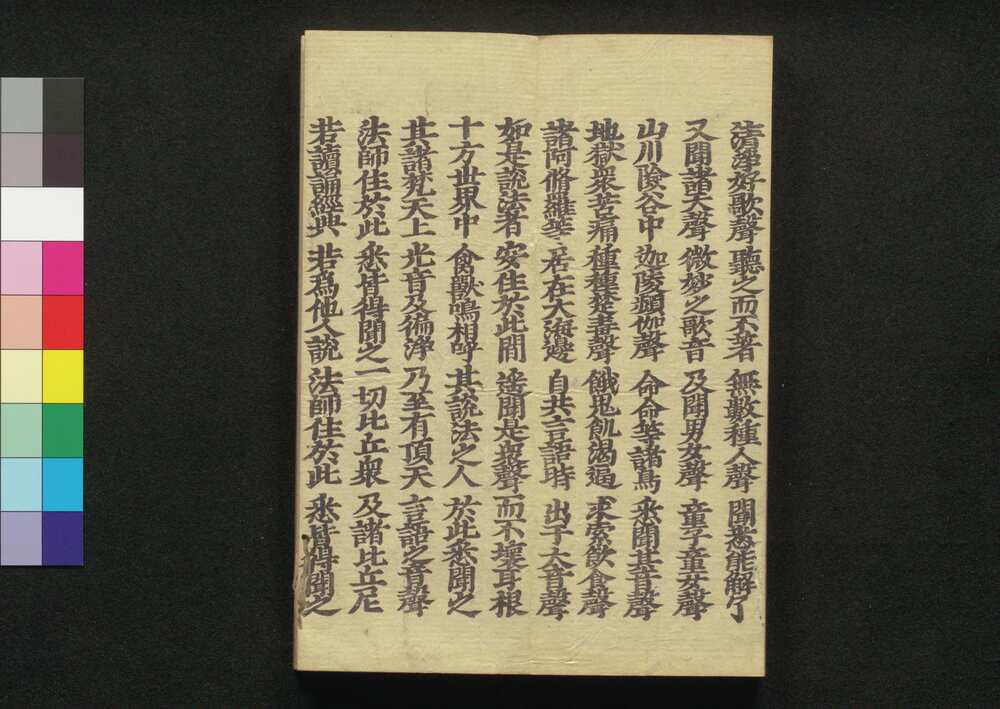 清淨好歌聲 聽之而不著 無數種人聲 聞悉能解了
又聞諸天聲 微妙之歌音 及聞男女聲 童子童女聲
山川險谷中 迦陵頻伽聲 命命等諸鳥 悉聞其音聲
地獄衆苦痛 種種楚毒聲 餓鬼飢渴逼 求索飲食聲
諸阿脩羅等 居在大海邊 自共言語時 出于大音聲
如是說法者 安住於此間 遙聞是衆聲 而不壞耳根
十方世界中 禽獸鳴相呼 其說法之人 於此悉聞之
其諸梵天上 光音及徧淨 乃至有頂天 言語之音聲
法師住於此 悉皆得聞之 一切比丘衆 及諸比丘尼
若讀誦經典 若為他人說 法師住於此 悉皆得聞之